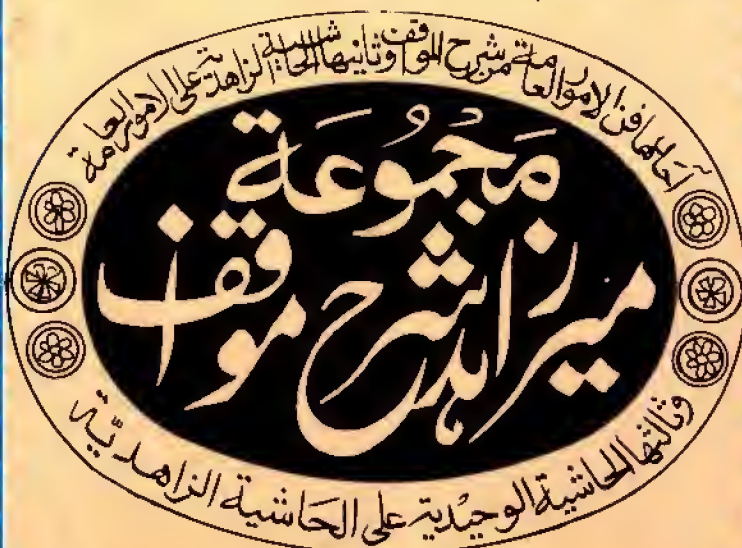 احدٰلها فن الامور العامة من شرح المواقف وثانيها الحاشية الزاهدية على الامور العامة
مَجْمُوعَة
میرزاهد شرح مواقف
وثالثها الحاشية الوحيدية على الحاشية الزاهدية